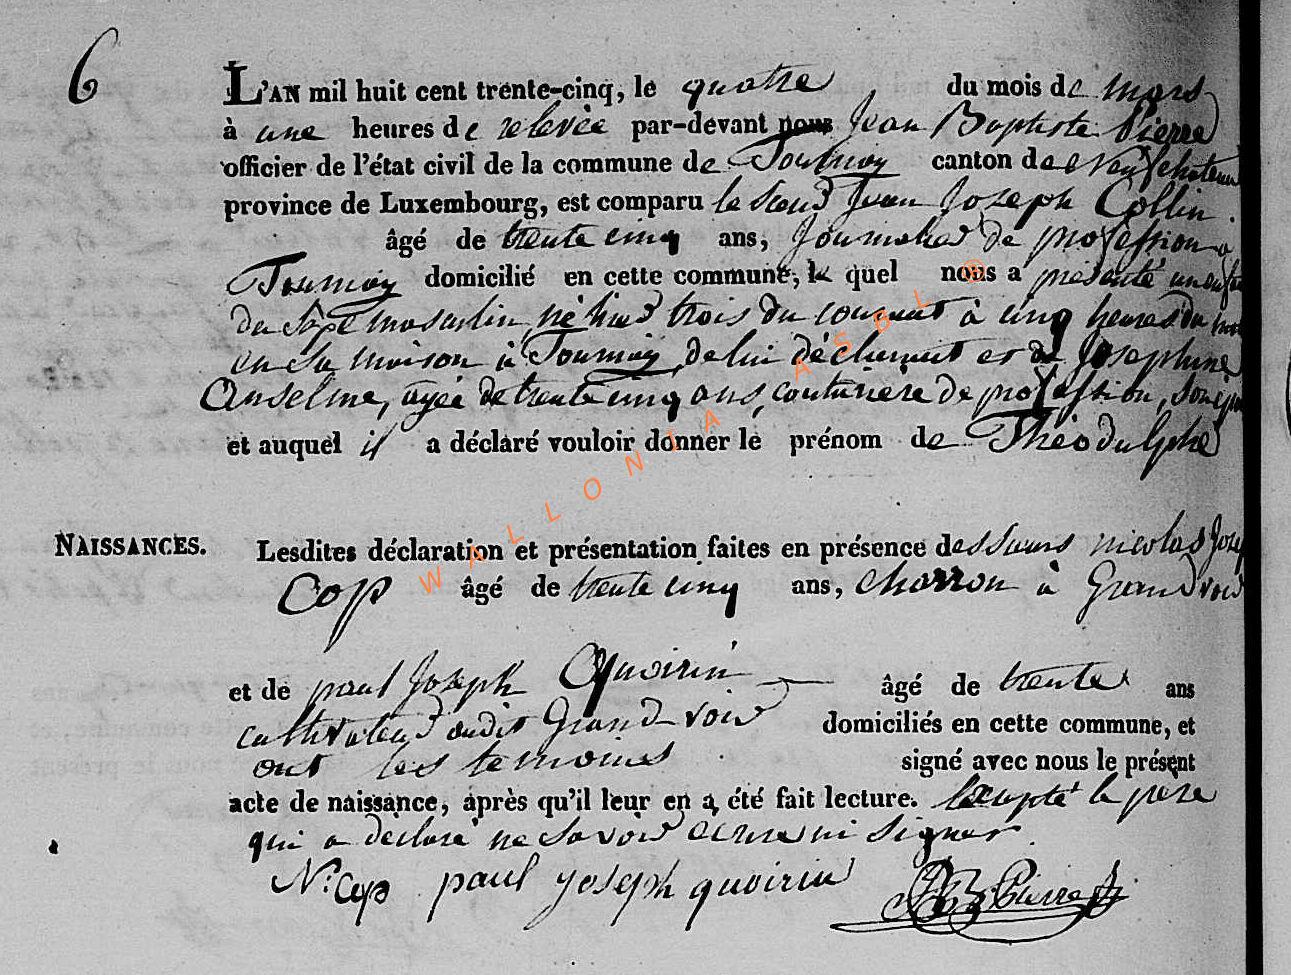 6
L'AN mil huit cent trente-cinq, le quatre du mois de mars
à une heures de relevée par-devant nous Jean Baptiste Pierre
officier de l'état civil de la commune de Tournay canton de neufchateau
province de Luxembourg, est comparu le sieur Jean Joseph Collin
âgé de trente cinq ans, Journalier de profession a
Tournay domicilié en cette commune, le quel nous a présenté un enfant
du sexe masculin, né hier trois du courant à cinq heures du
en sa maison à Tournay, de lui déclarant et de Josephine
Anselme, agée de trente cinq ans, couturière de profession, son
et auquel il a déclaré vouloir donner le prénom de Théodulphe
NAISSANCES.
Lesdites déclaration et présentation faites en présence des sieurs nicolas Joseph
Cop âgé de trente cinq ans, charron à Grandvoir
et de paul Joseph Quoirin âgé de trente ans
cultivateur audit Grand-voir domiciliés en cette commune, et
ont les temoins signé avec nous le présent
acte de naissance, après qu'il leur en a été fait lecture. Excepté le pere
qui a déclaré ne savoir ecrire ni signer.
N. Cop paul joseph quoirin JB Pierre
WALLONIA ASBL ®